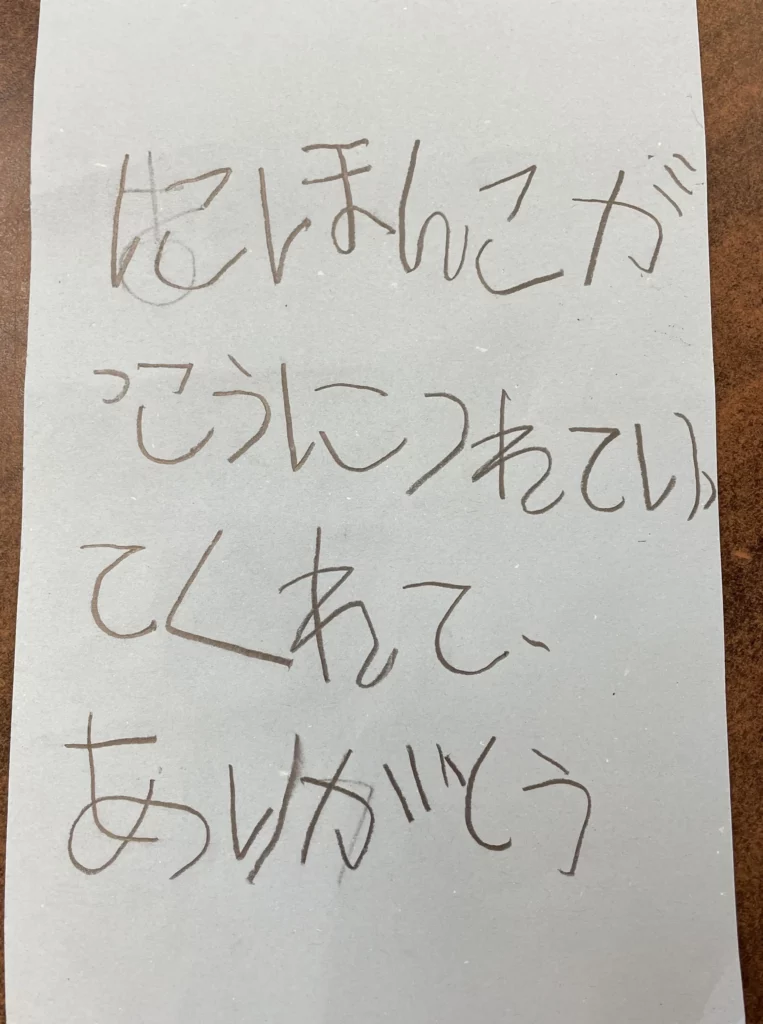 にほんこが
っこうにつれていっ
てくれて、
ありがとう